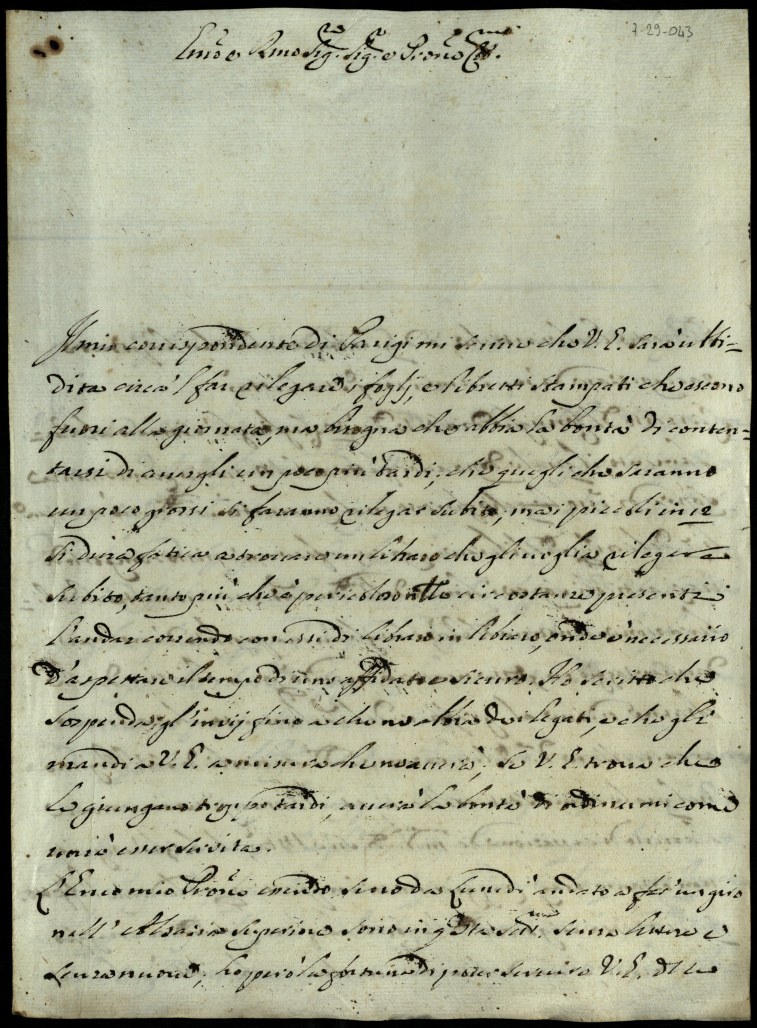 7-29-043
Emo e Rmo Sig.re Sig.r e Prone Col.mo
Il mio corrispondente di Parigi mi scrive che V. E. sarà ubbi=
dita circa 'l far rilegare i foglj, e libretti stampati che escono
fuori alla giornata, ma bisogna che abbia la bontà di conten=
tarsi di avergli un poco più tardi; che quegli che saranno
un poco grossi si faranno rilegar subito, ma i piccoli in 12
si dura fatica a trovare un libraro che gli voglia rilegare
subito, tanto più che è pericoloso nelle circostanze presenti
l'andar correndo con essi di libraro in libraro, onde è necessario
d'aspettare il tempo di uno affidato e sicuro. Ho scritto che
sospenda gl'invij fino a che ne abbia de i legati, e che gli
mandi a V. E. a misura che ne averà; Se V. E. trova che
le giungano troppo tardi, averà la bontà di ordinarmi come
vorrà esser servita.
L'Emo mio Prone essendo sino da Lunedì andato a far un giro
nell' Alsazia Superiore sono in qsta Sett.na senza lettere e
senza nuove; ho però la fortuna di poter servire V. E.